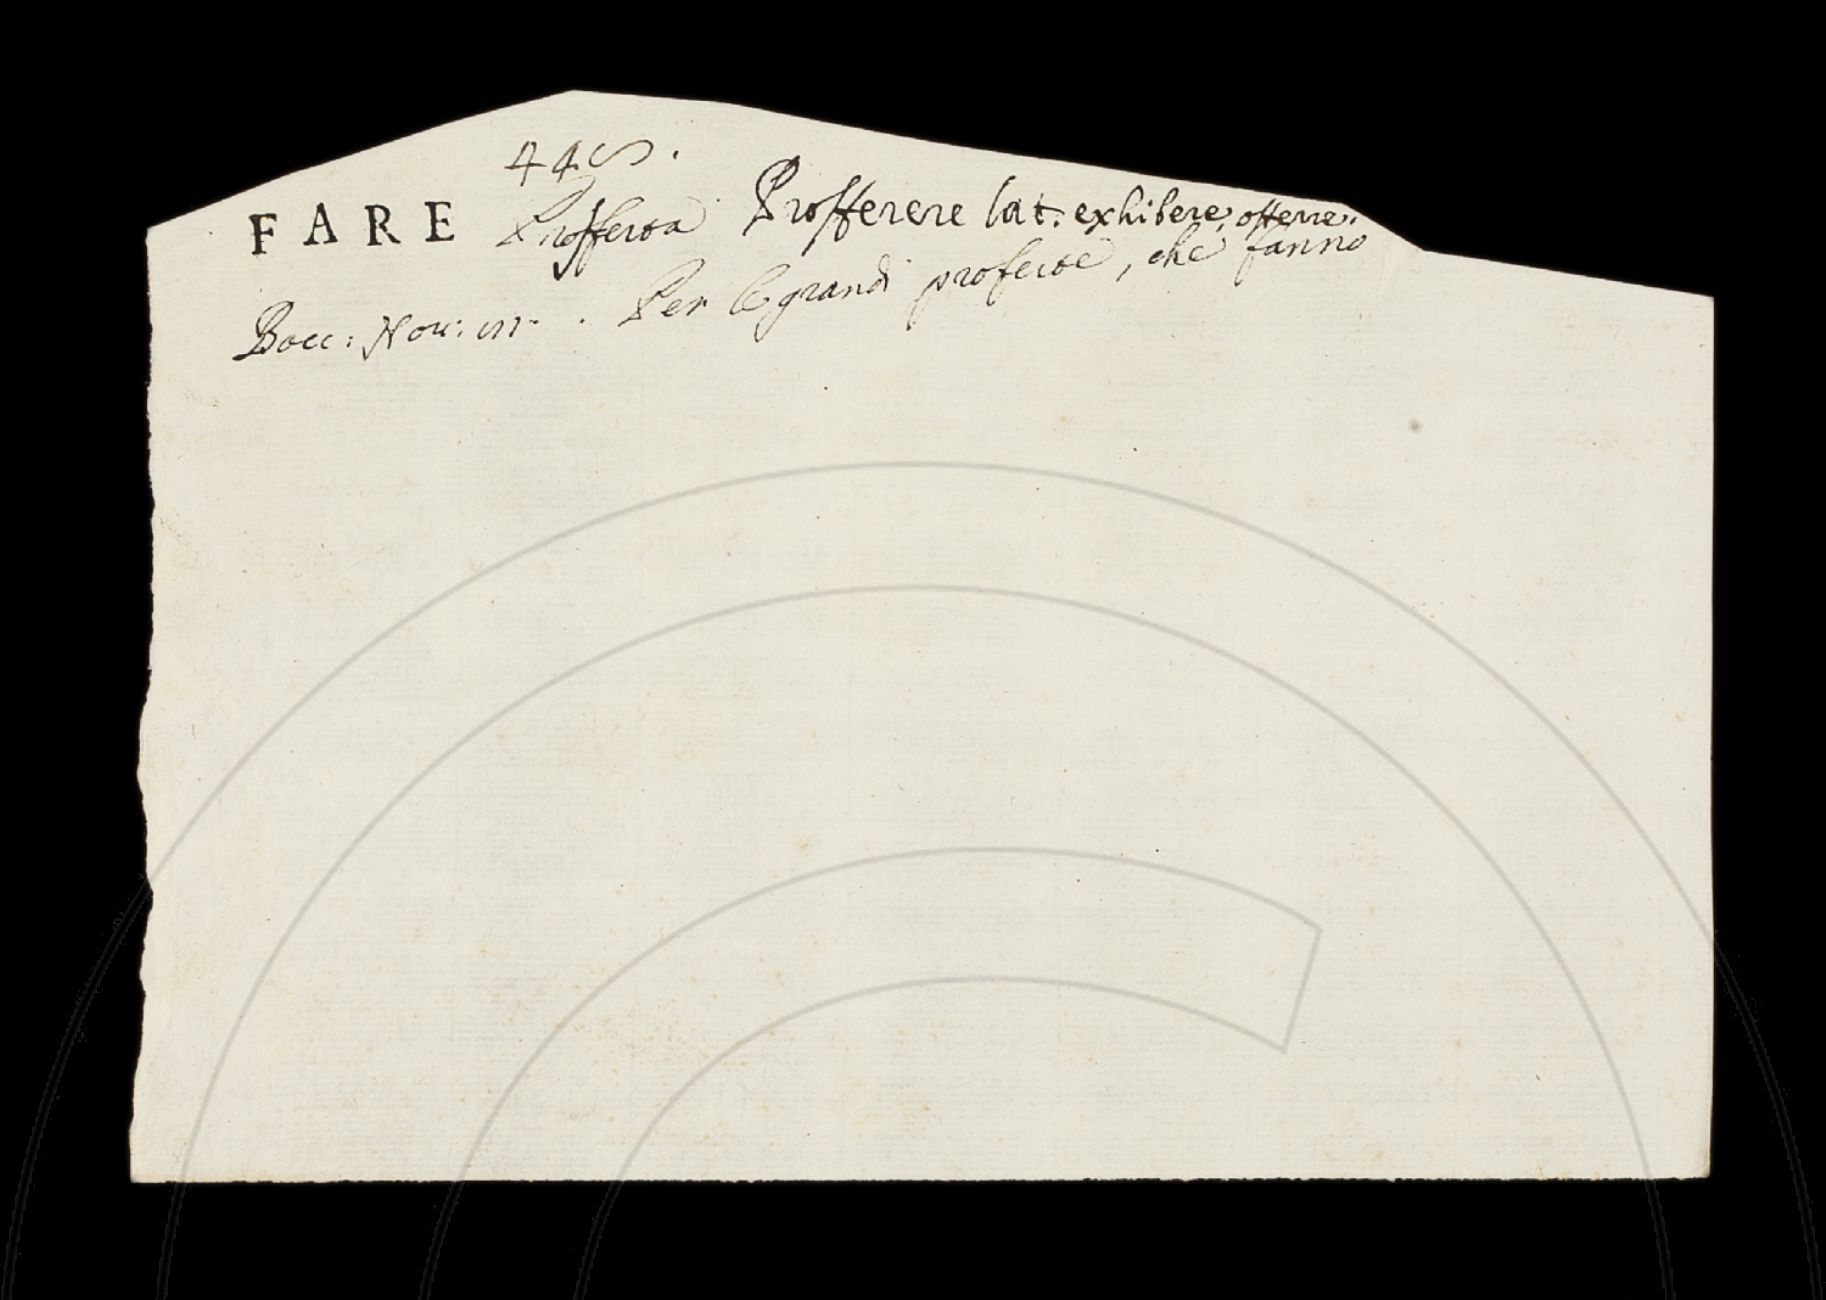 FARE Profferta Profferere lat. exhibere, offerre.
Bocc: Nov: . Per le grandi proferte, che fanno